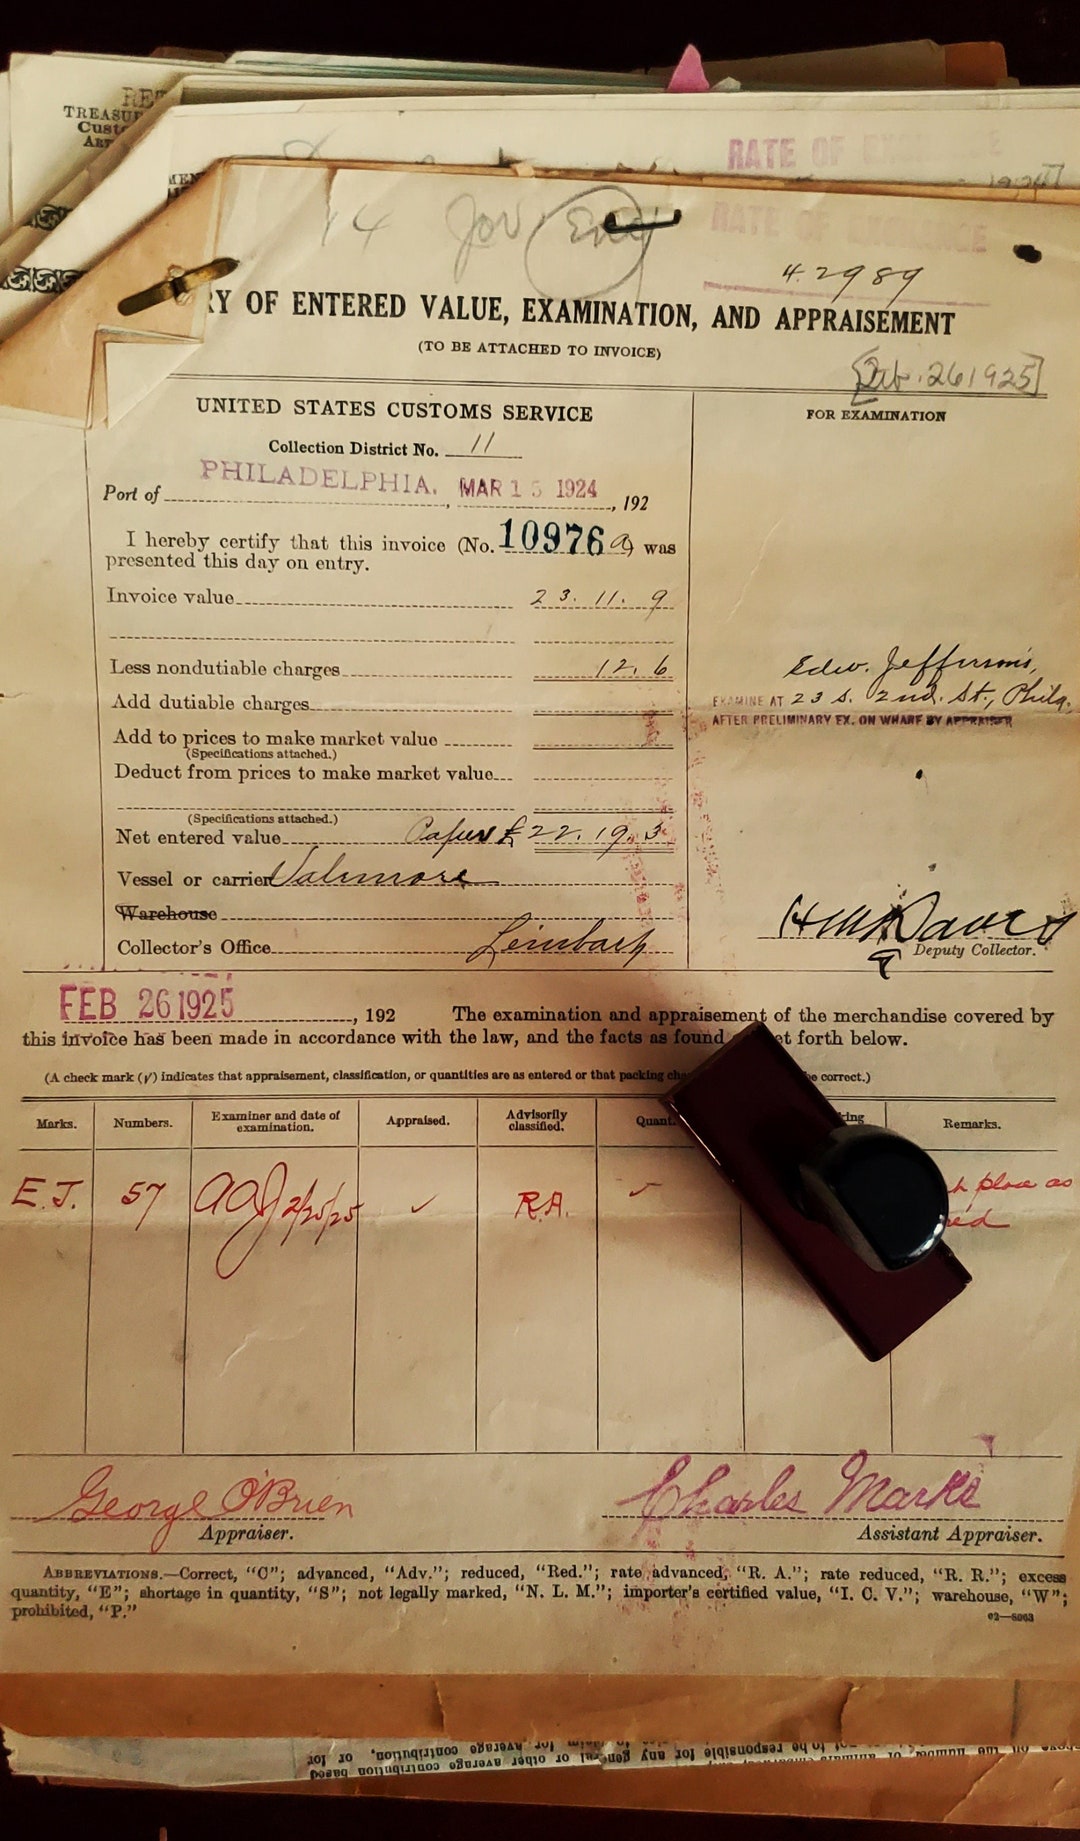 TREASU
Custo
RATE OF EXCHANGE
14 Jov Eng
RATE OF EXCHANGE
4.2989
RY OF ENTERED VALUE, EXAMINATION, AND APPRAISEMENT
(TO BE ATTACHED TO INVOICE)
Feb. 26 1925
UNITED STATES CUSTOMS SERVICE
FOR EXAMINATION
Collection District No. 11
Port of PHILADELPHIA, MAR 15 1924, 192
I hereby certify that this invoice (No. 10976 a) was
presented this day on entry.
Invoice value 23. 11. 9
Less nondutiable charges 12. 6
Add dutiable charges
Add to prices to make market value
(Specifications attached.)
Deduct from prices to make market value
(Specifications attached.)
Net entered value £22. 19. 3
Vessel or carrier
Warehouse
Collector's Office
Edw. Jefferson's,
EXAMINE AT 23 S. 2nd. St., Phila.
AFTER PRELIMINARY EX. ON WHARF BY APPRAISER
Davis
Deputy Collector.
FEB 26 1925, 192 The examination and appraisement of the merchandise covered by
this invoice has been made in accordance with the law, and the facts as found et forth below.
(A check mark (√) indicates that appraisement, classification, or quantities are as entered or that packing che be correct.)
Marks. Numbers. Examiner and date of examination. Appraised. Advisorily classified. Quant king Remarks.
E.J. 57 2/25/25 ✓ R.A. ✓ place as
ed
George O'Brien
Charles Marks
Appraiser.
Assistant Appraiser.
ABBREVIATIONS.—Correct, "C"; advanced, "Adv."; reduced, "Red."; rate advanced, "R. A."; rate reduced, "R. R."; excess
quantity, "E"; shortage in quantity, "S"; not legally marked, "N. L. M."; importer's certified value, "I. C. V."; warehouse, "W";
prohibited, "P."
to be responsible for any general or other average contribution, or for